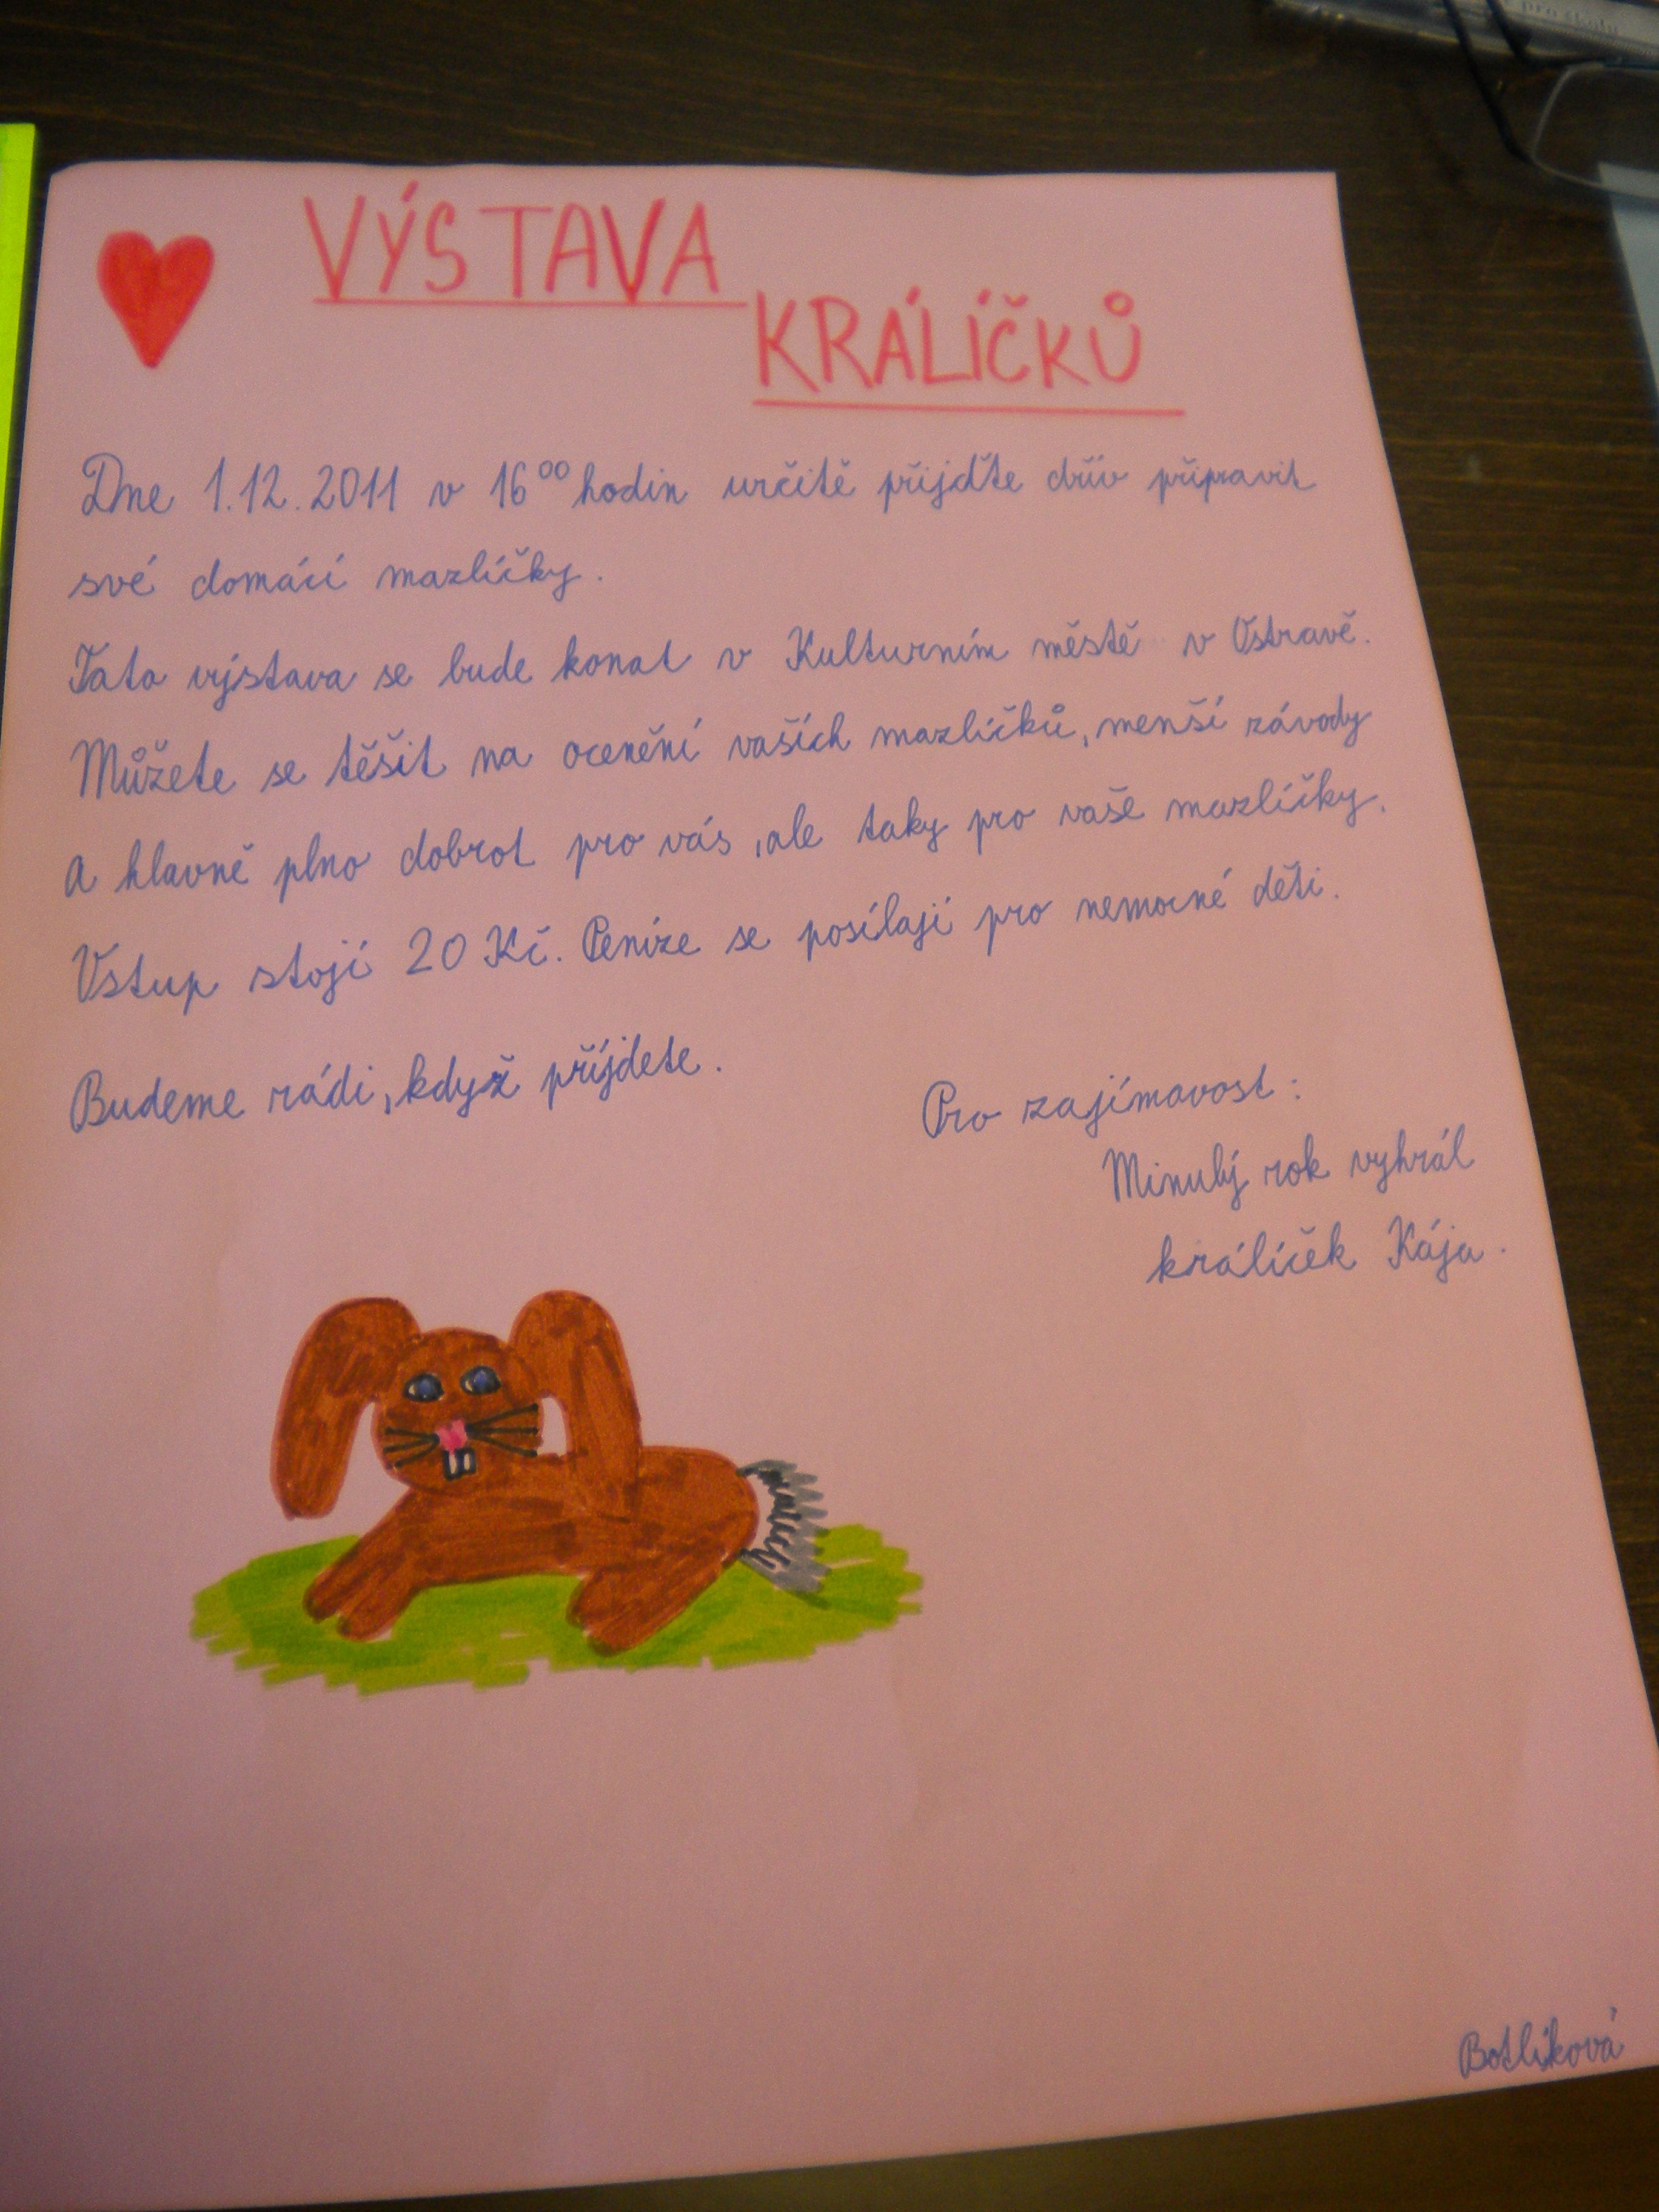 VÝSTAVA
KRÁLÍČKŮ
Dne 1.12.2011 v 16⁰⁰ hodin určitě přijďte dřív připravit
své domácí mazlíčky.
Tato výstava se bude konat v Kulturním městě v Ostravě.
Můžete se těšit na ocenění vaších mazlíčků, menší závody
a hlavně plno dobrot pro vás ,ale taky pro vaše mazlíčky.
Vstup stojí 20 Kč. Peníze se posílají pro nemocné děti.
Budeme rádi, když příjdete.
Pro zajímavost:
Minulý rok vyhrál
králíček Kája.
Botlíková